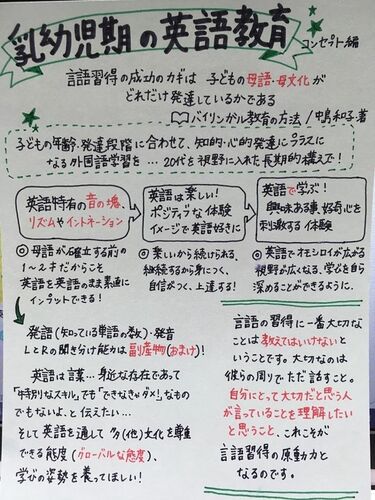 乳幼児期の英語教育 コンセプト編
言語習得の成功のカギは 子どもの母語・母文化が
どれだけ発達しているかである
バイリンガル教育の方法/中島和子著
子どもの年齢・発達段階に合わせて、知的・心的発達にプラスに
なる外国語学習を … 20代を視野に入れた長期的構えで!
英語特有の音の塊、
リズムやイントネーション
英語は楽しい!
ポジティブな体験
イメージで英語好きに
英語で学ぶ!
興味ある事、好奇心を
刺激する体験
◎母語が確立する前の
1〜2才だからこそ
英語を英語のまま素直に
インプットできる!
◎楽しいから続けられる、
継続するから身につく、
自信がつく、上達する!
◎英語でオモシロイが広がる
視野が広くなる、学びを自ら
深めることができるように。
発語(知っている単語の数)・発音
LとRの聞き分け能力は副産物(おまけ)!
英語は言葉…身近な存在であって
「特別なスキル」でも「できなきゃダメ!」なもの
でもないよ、と伝えたい…
そして英語を通して多(他)文化を尊重
できる態度(グローバルな態度)、
学びの姿勢を養ってほしい!
言語の習得に一番大切な
ことは教えてはいけないと
いうことです。大切なのは
彼らの周りでただ話すこと。
自分にとって大切だと思う人
が言っていることを理解したい
と思うこと、これこそが
言語習得の原動力と
なるのです。